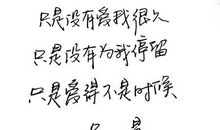 只是没有爱我很久
只是没有为我停留
只是爱得不是时候
只是